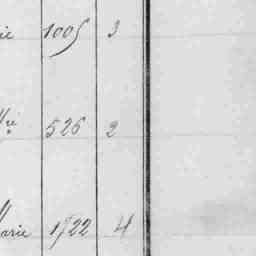 ie 1005 3
526 2
Marie 1522 4